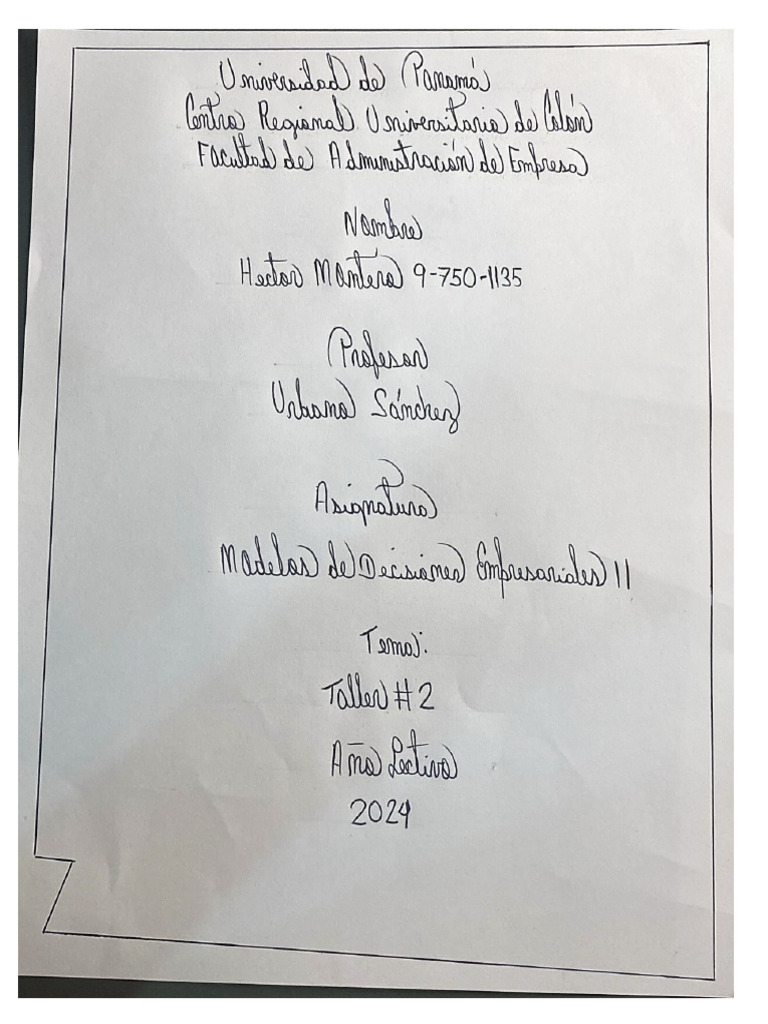 Universidad de Panamá
Centro Regional Universitario de Colón
Facultad de Administración de Empresa
Nombre
Hector Montero 9-750-1135
Profesor
Urbano Sánchez
Asignatura
Modelos de Decisiones Empresariales II
Tema:
Taller #2
Año Lectivo
2024